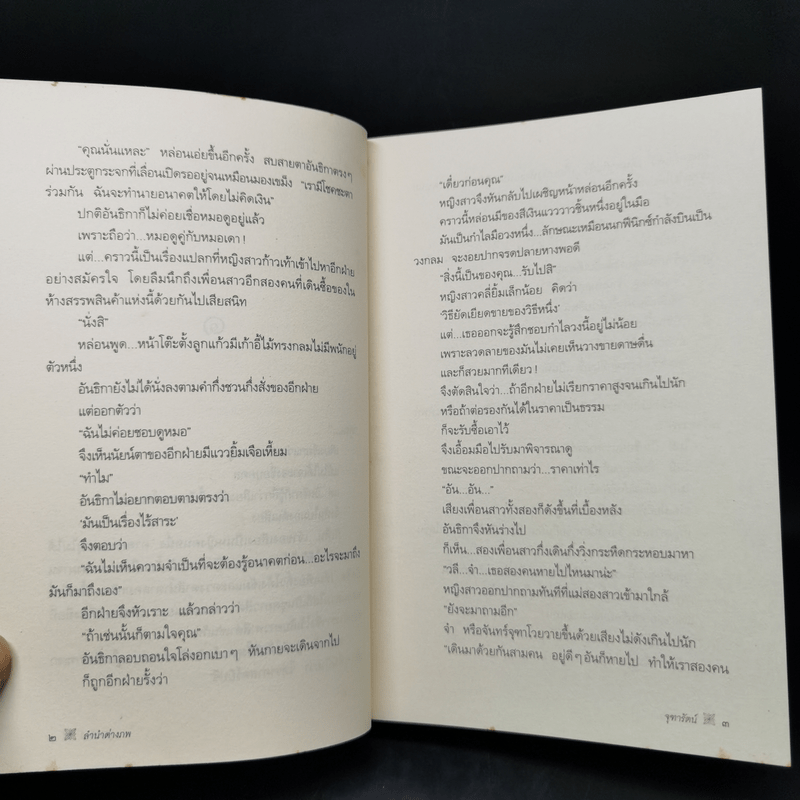 "คุณนั่นแหละ" หล่อนเอ่ยขึ้นอีกครั้ง สบสายตาอันธิกาตรงๆ
ผ่านประตูกระจกที่เลื่อนเปิดรออยู่จนเหมือนมองเขม็ง "เรามีโชคชะตา
ร่วมกัน ฉันจะทำนายอนาคตให้โดยไม่คิดเงิน"
ปกติอันธิกาก็ไม่ค่อยเชื่อหมอดูอยู่แล้ว
เพราะถือว่า...หมอดูคู่กับหมอเดา!
แต่...คราวนี้เป็นเรื่องแปลกที่หญิงสาวก้าวเท้าเข้าไปหาอีกฝ่าย
อย่างสมัครใจ โดยลืมนึกถึงเพื่อนสาวอีกสองคนที่เดินซื้อของใน
ห้างสรรพสินค้าแห่งนี้ด้วยกันไปเสียสนิท
"นั่งสิ"
หล่อนพูด...หน้าโต๊ะตั้งลูกแก้วมีเก้าอี้ไม้ทรงกลมไม่มีพนักอยู่
ตัวหนึ่ง
อันธิกายังไม่ได้นั่งลงตามคำกึ่งชวนกึ่งสั่งของอีกฝ่าย
แต่ออกตัวว่า
"ฉันไม่ค่อยชอบดูหมอ"
จึงเห็นนัยน์ตาของอีกฝ่ายมีแววยิ้มเจือเหี้ยม
"ทำไม"
อันธิกาไม่อยากตอบตามตรงว่า
'มันเป็นเรื่องไร้สาระ'
จึงตอบว่า
"ฉันไม่เห็นความจำเป็นที่จะต้องรู้อนาคตก่อน...อะไรจะมาถึง
มันก็มาถึงเอง"
อีกฝ่ายจึงหัวเราะ แล้วกล่าวว่า
"ถ้าเช่นนั้นก็ตามใจคุณ"
อันธิกาลอบถอนใจโล่งอกเบาๆ หันกายจะเดินจากไป
ก็ถูกอีกฝ่ายรั้งว่า
๒ ลำนำต่างภพ
"เดี๋ยวก่อนคุณ"
หญิงสาวจึงหันกลับไปเผชิญหน้าหล่อนอีกครั้ง
คราวนี้หล่อนมีของสีเงินแวววาวชิ้นหนึ่งอยู่ในมือ
มันเป็นกำไลมือวงหนึ่ง...ลักษณะเหมือนนกฟีนิกซ์กำลังบินเป็น
วงกลม จะงอยปากจรดปลายหางพอดี
"สิ่งนี้เป็นของคุณ...รับไปสิ"
หญิงสาวคลี่ยิ้มเล็กน้อย คิดว่า
'วิธียัดเยียดขายของวิธีหนึ่ง'
แต่...เธอออกจะรู้สึกชอบกำไลวงนี้อยู่ไม่น้อย
เพราะลวดลายของมันไม่เคยเห็นวางขายดาษดื่น
และก็สวยมากทีเดียว!
จึงตัดสินใจว่า...ถ้าอีกฝ่ายไม่เรียกราคาสูงจนเกินไปนัก
หรือถ้าต่อรองกันได้ในราคาเป็นธรรม
ก็จะรับซื้อเอาไว้
จึงเอื้อมมือไปรับมาพิจารณาดู
ขณะจะออกปากถามว่า...ราคาเท่าไร
"อัน...อัน..."
เสียงเพื่อนสาวทั้งสองก็ดังขึ้นที่เบื้องหลัง
อันธิกาจึงหันร่างไป
ก็เห็น...สองเพื่อนสาวกึ่งเดินกึ่งวิ่งกระหืดกระหอบมาหา
"วลี...จ๋า...เธอสองคนหายไปไหนมาน่ะ"
หญิงสาวออกปากถามทันทีที่แม่สองสาวเข้ามาใกล้
"ยังจะมาถามอีก"
จ๋า หรือจันทร์จุฑาโวยวายขึ้นด้วยเสียงไม่ดังเกินไปนัก
"เดินมาด้วยกันสามคน อยู่ดีๆ อันก็หายไป ทำให้เราสองคน
จุฑารัตน์ ๓